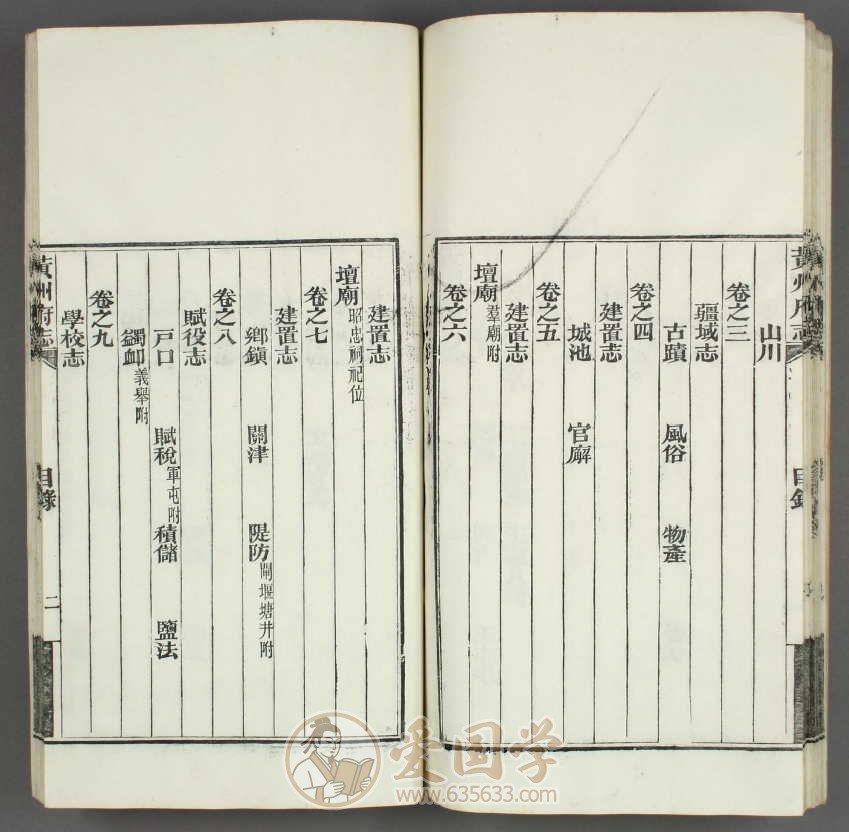 黃州府志
目錄
山川
卷之三
疆域志
古蹟 風俗 物產
卷之四
建置志
城池 官廨
卷之五
建置志
壇廟 羣廟附
卷之六
建置志
壇廟 昭忠祠祀位
卷之七
建置志
鄉鎮 關津 隄防 閘堰塘井附
卷之八
賦役志
戶口 賦稅 軍屯附 積儲 鹽法
蠲卹 義舉附
卷之九
學校志
黃州府志
目錄
二
爱国学
www.635633.com